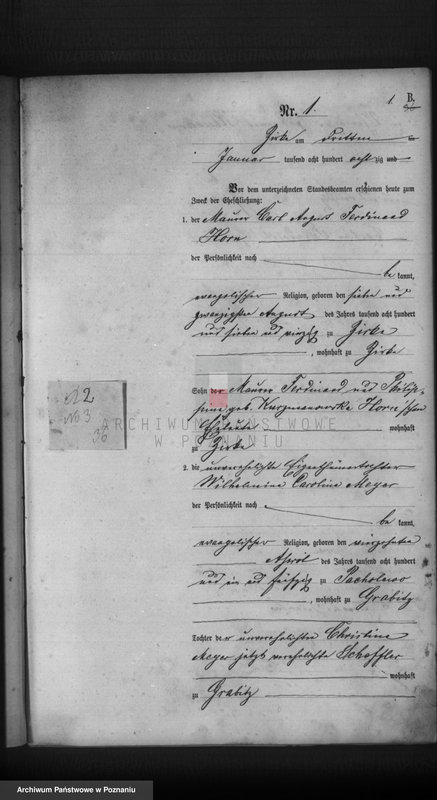 1. B.
Nr. 1.
Zirke am dritten
Januar tausend acht hundert achtzig und
Vor dem unterzeichneten Standesbeamten erschienen heute zum
Zweck der Eheschließung:
1. der Maurer Carl August Ferdinand
Horn
der Persönlichkeit nach
be kannt,
evangelischer Religion, geboren den sieben und
zwanzigsten August des Jahres tausend acht hundert
und sieben und vierzig zu Zirke
, wohnhaft zu Zirke
Sohn der Maurer Ferdinand und
geb. Horn'schen
Eheleute wohnhaft
zu Zirke
N 2
No 3
ARCHIWUM PAŃSTWOWE
W POZNANIU
2. die unverehelichte Eigenthümertochter
Wilhelmine Caroline Meyer
der Persönlichkeit nach
be kannt,
evangelischer Religion, geboren den vierzehnten
April des Jahres tausend acht hundert
und ein und fünfzig zu
, wohnhaft zu Grabitz
Tochter der unverehelichten Christine
Meyer jetzt verehelichte Schoffler
wohnhaft
zu Grabitz
Archiwum Państwowe w Poznaniu